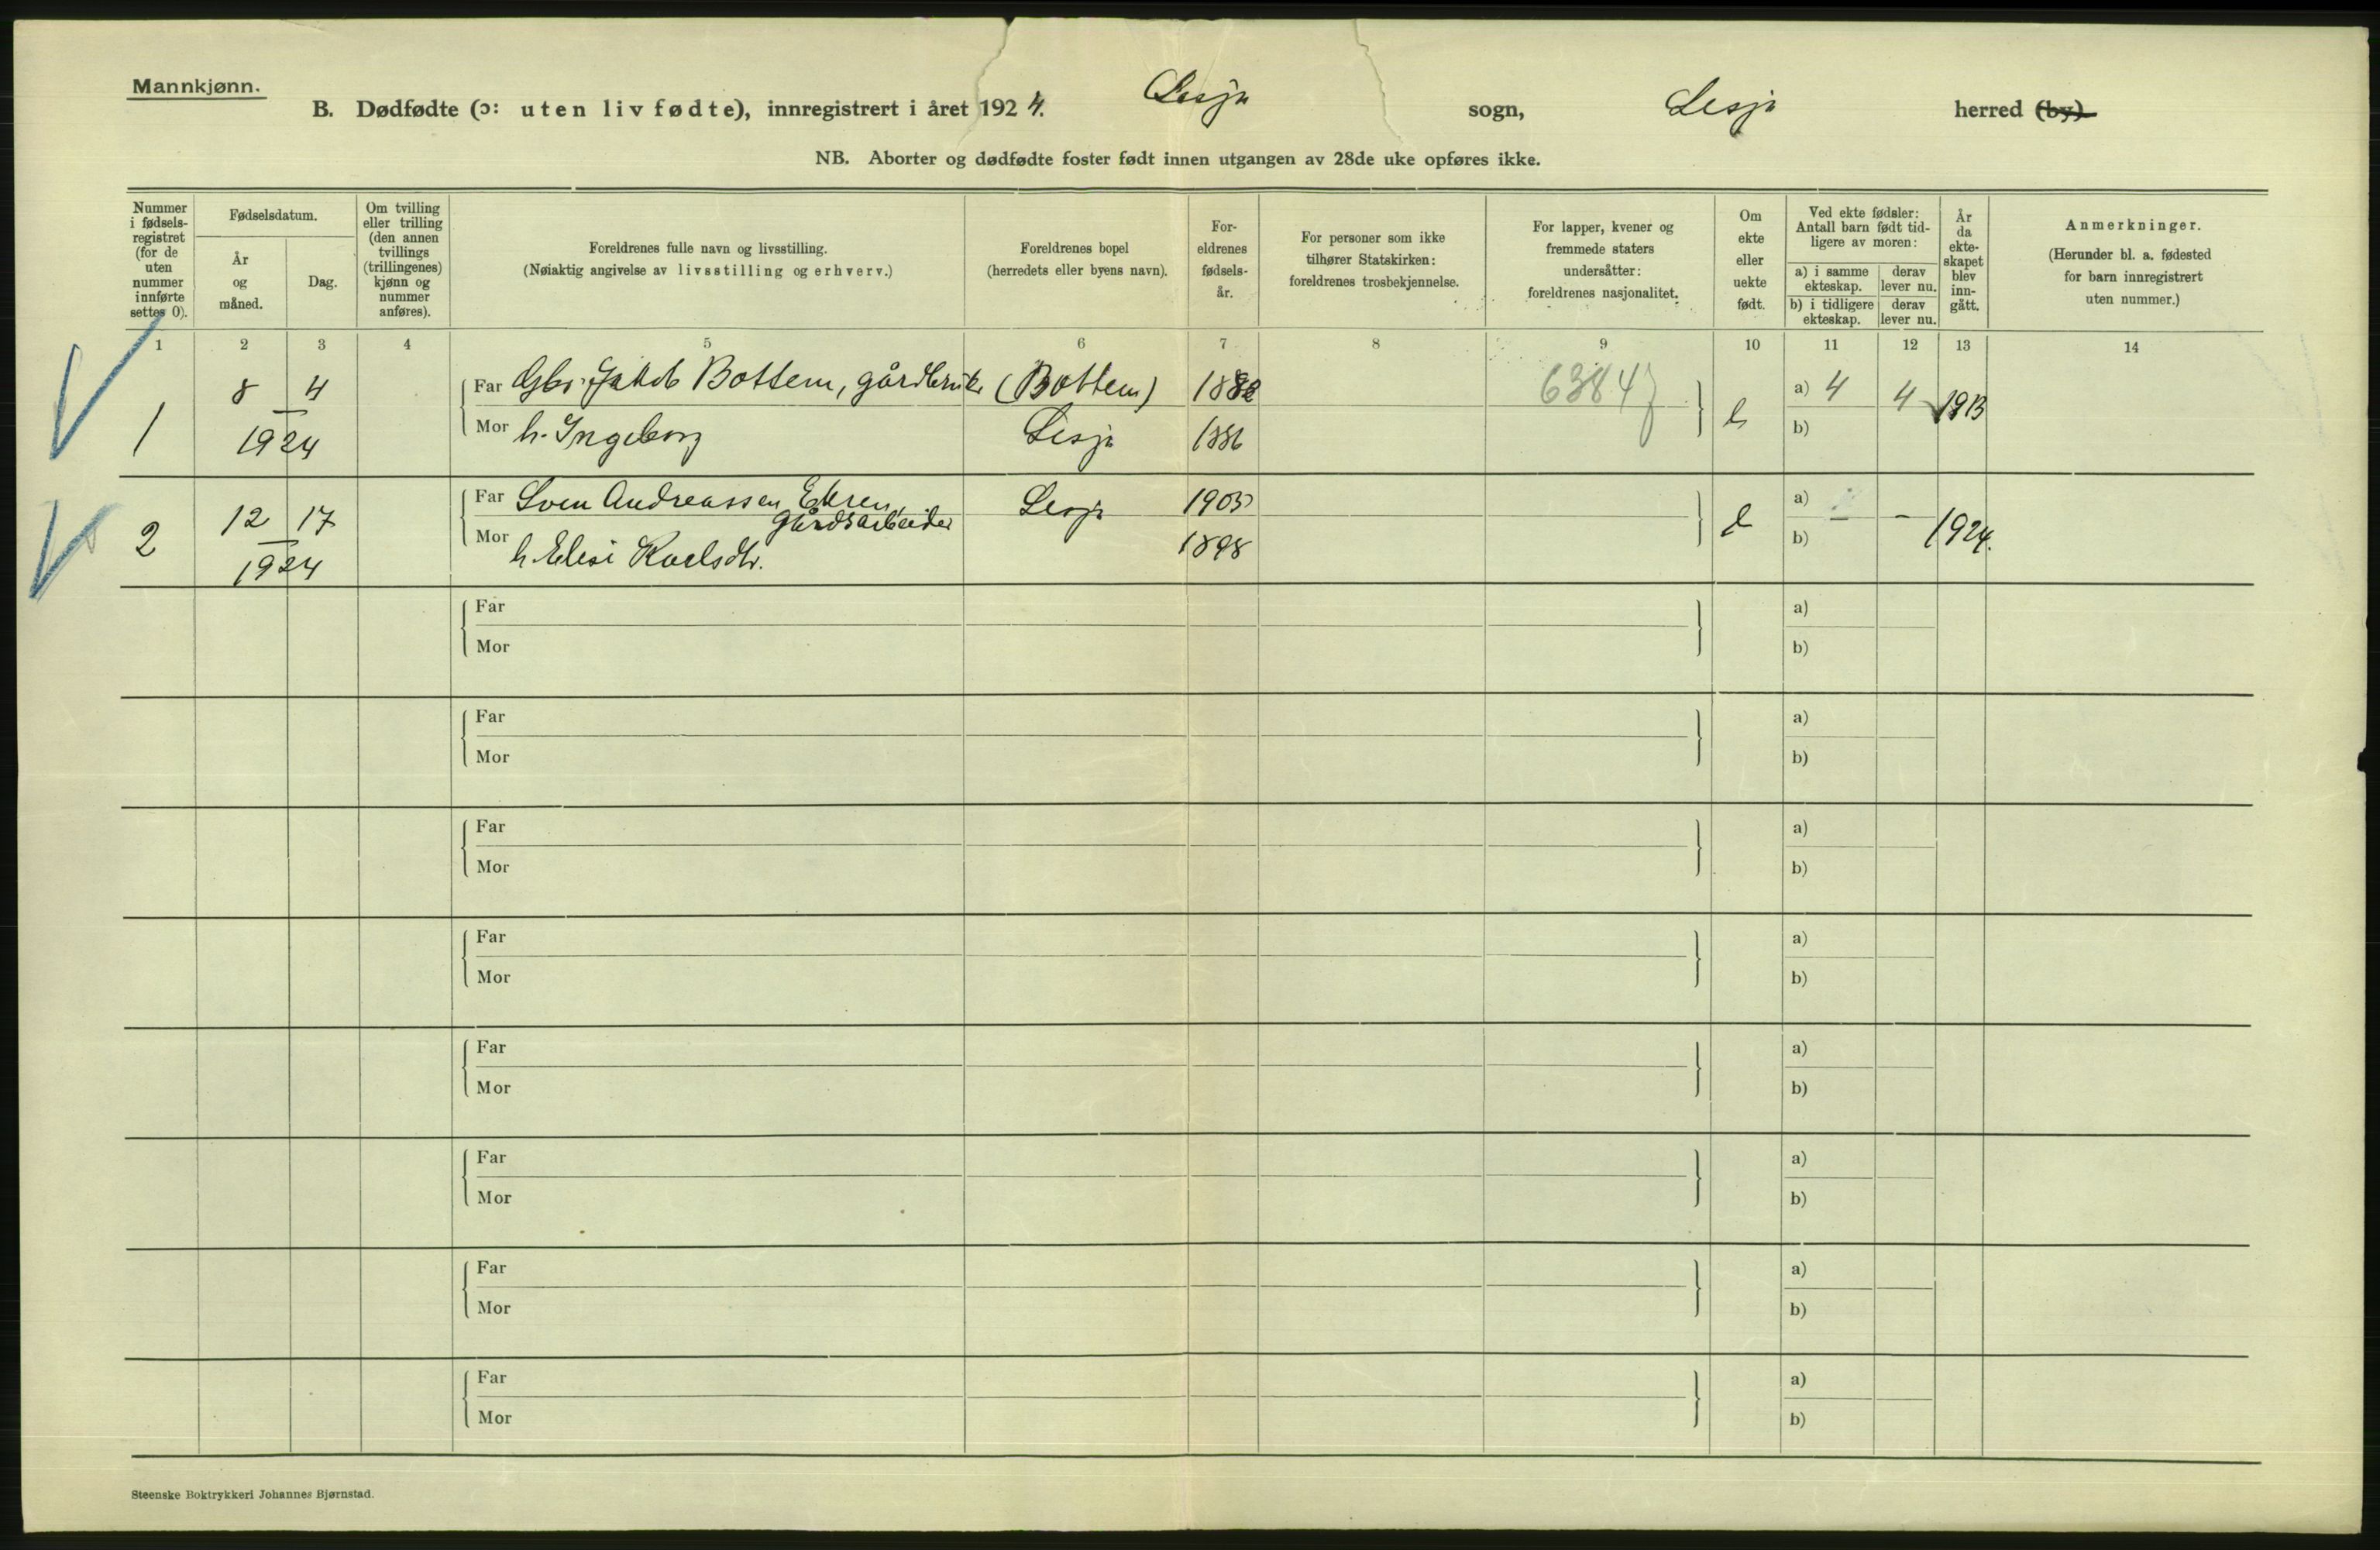 Mannkjønn.
B. Dødfødte (ɔ: uten liv fødte), innregistrert i året 1924. Lesja sogn, Lesja herred (by).
NB. Aborter og dødfødte foster født innen utgangen av 28de uke opføres ikke.
Nummer i fødsels-registret (for de uten nummer innførte settes 0).
Fødselsdatum.
År og måned.
Dag.
Om tvilling eller trilling (den annen tvillings (trillingenes) kjønn og nummer anføres).
Foreldrenes fulle navn og livsstilling.
(Nøiaktig angivelse av livsstilling og erhverv.)
Foreldrenes bopel
(herredets eller byens navn).
For-eldrenes fødsels-år.
For personer som ikke tilhører Statskirken: foreldrenes trosbekjennelse.
For lapper, kvener og fremmede staters undersåtter: foreldrenes nasjonalitet.
Om ekte eller uekte født.
Ved ekte fødsler: Antall barn født tid-ligere av moren:
a) i samme ekteskap.
derav lever nu.
b) i tidligere ekteskap.
derav lever nu.
År da ekte-skapet blev inn-gått.
Anmerkninger.
(Herunder bl. a. fødested for barn innregistrert uten nummer.)
1 2 3 4 5 6 7 8 9 10 11 12 13 14
1 8 4 1924
Far Gbr. Jakob Bottem, gårdbruker (Bottem) 1882
63847
Mor h. Ingeborg Lesja 1886
e a) 4 4 1913
b)
2 12 17 1924
Far Sven Andreassen Ekren, Lesja 1903
gårdsarbeider
Mor h. Elise Roelsdtr. 1898
e a) – – 1924.
b)
Far a)
Mor b)
Far a)
Mor b)
Far a)
Mor b)
Far a)
Mor b)
Far a)
Mor b)
Far a)
Mor b)
Far a)
Mor b)
Far a)
Mor b)
Steenske Boktrykkeri Johannes Bjørnstad.